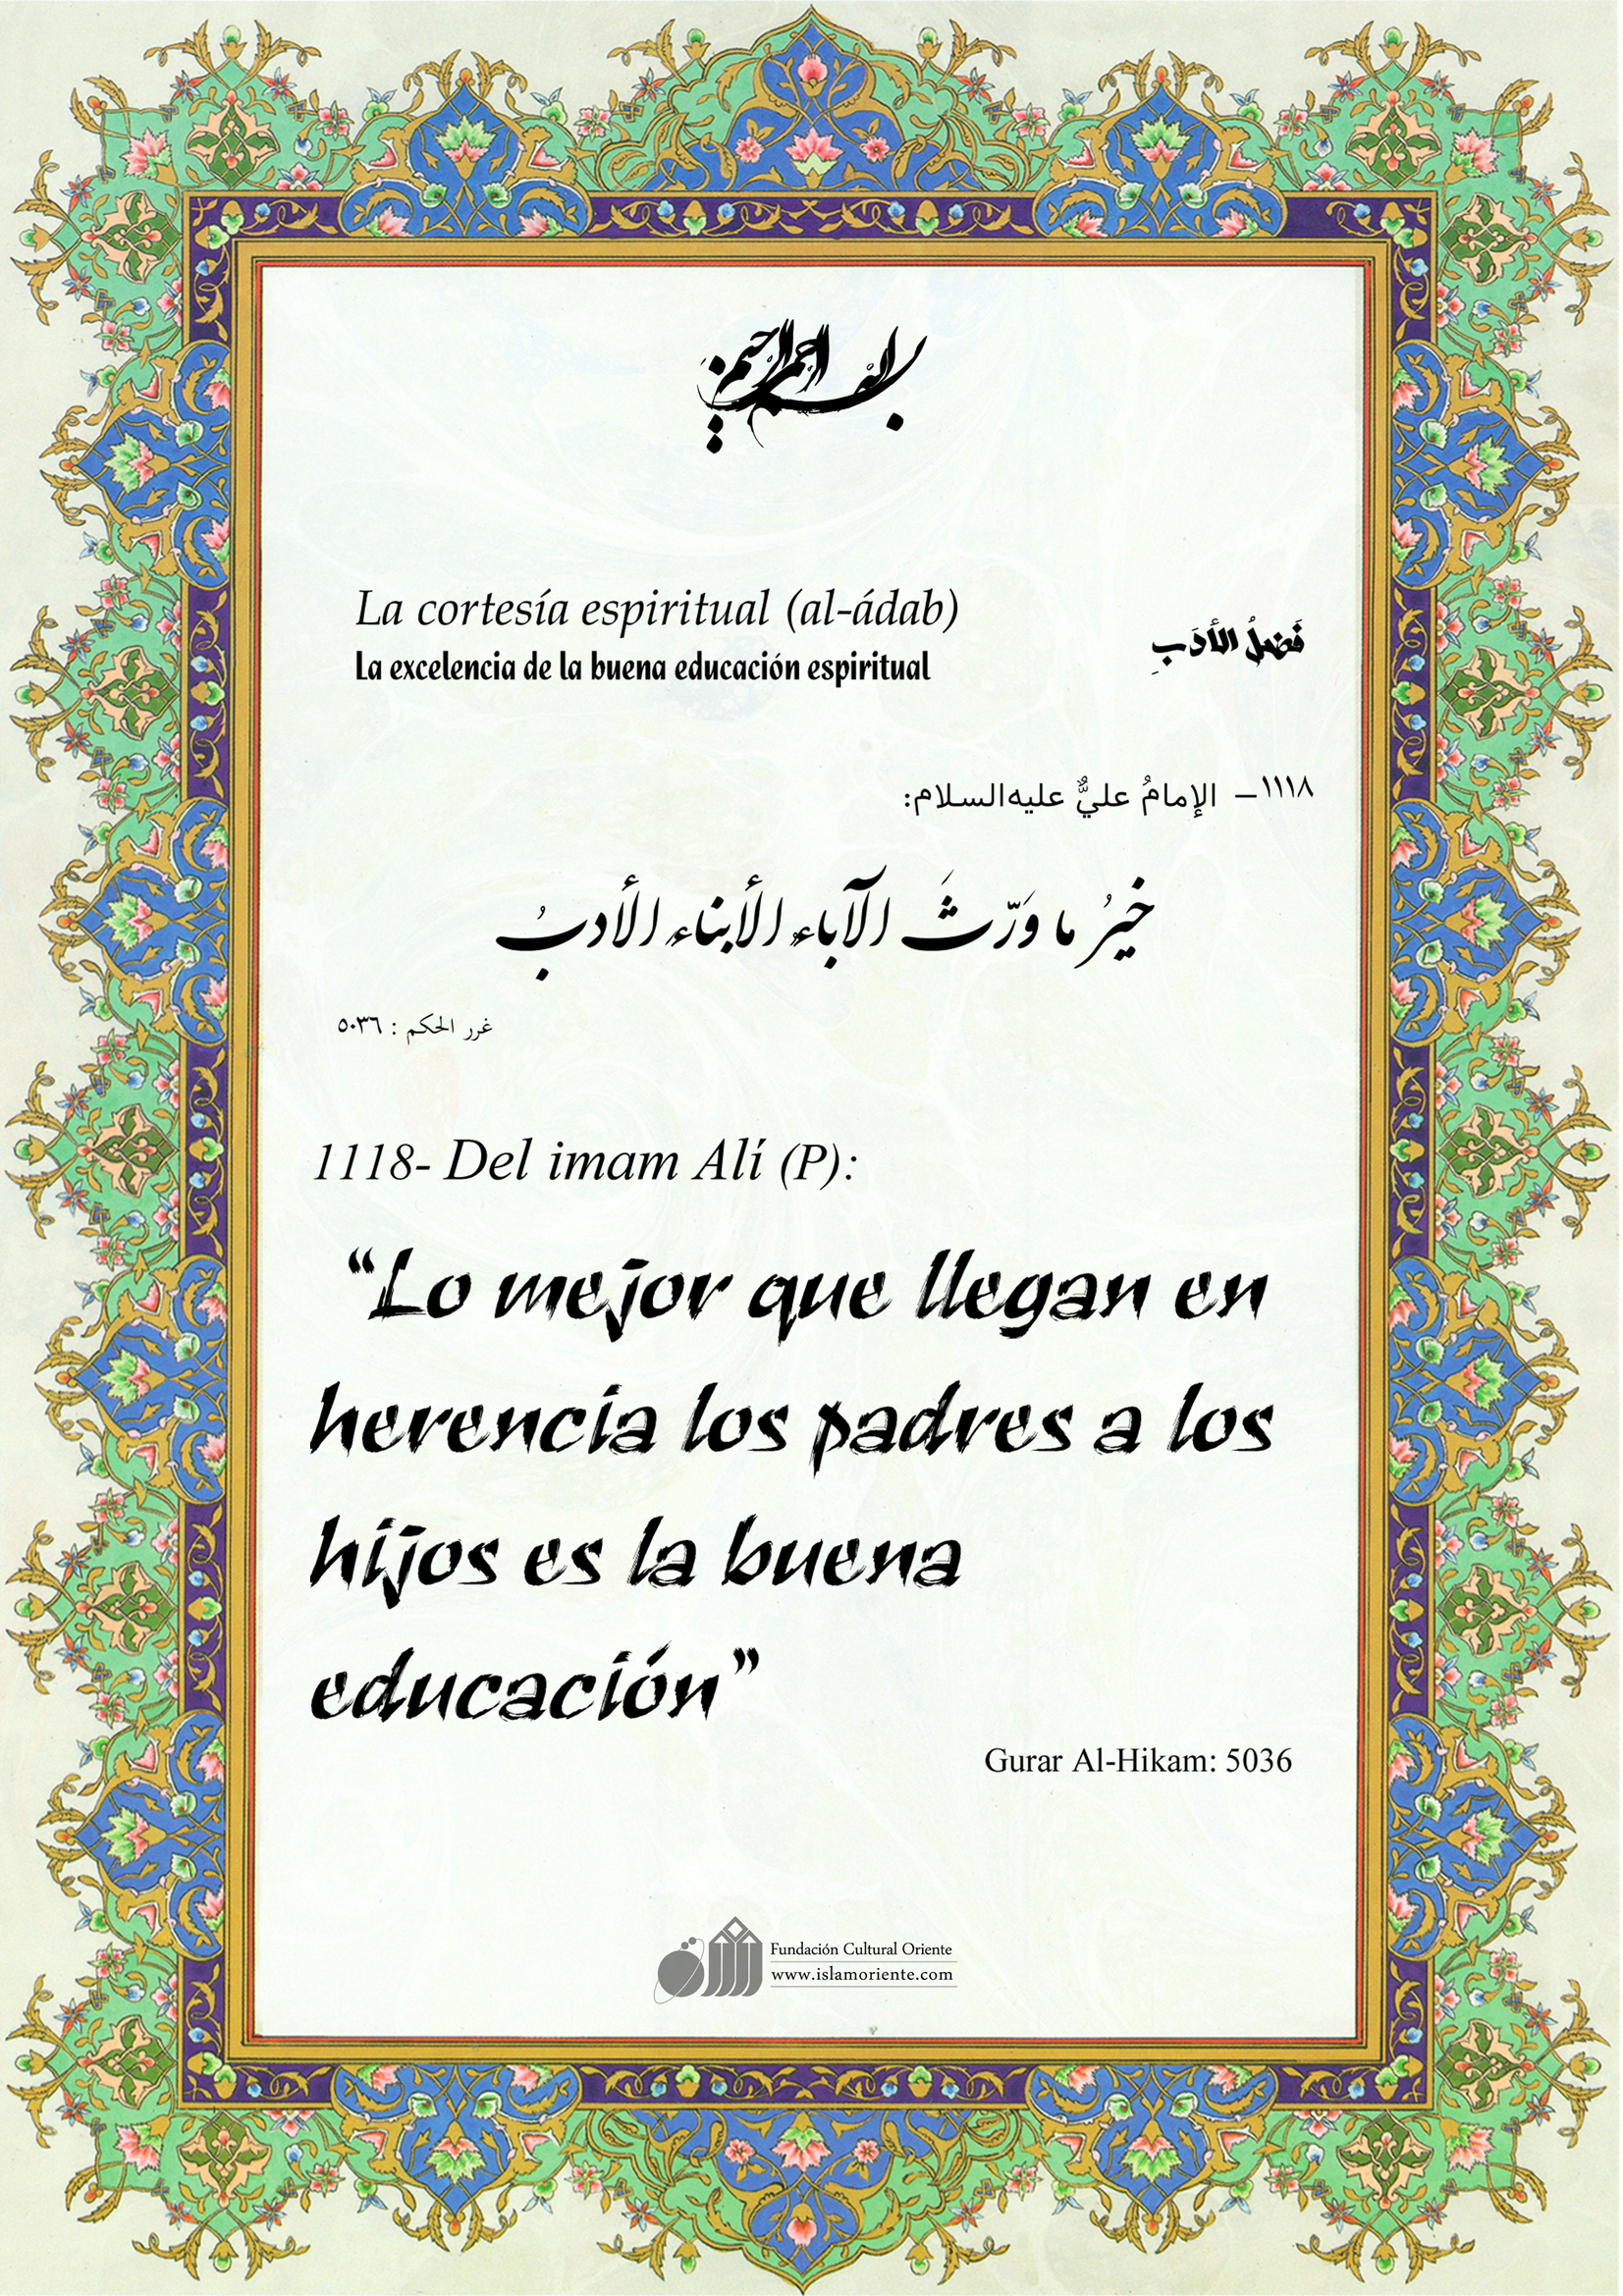 بسم الله الرحمن الرحيم
La cortesía espiritual (al-ádab)
فَضلُ الأدَبِ
La excelencia de la buena educación espiritual
١١١٨ – الإمامُ عليٌّ عليه‌السلام:
خيرُ ما وَرّثَ الآباء الأبناء الأدبُ
غرر الحكم : ٥٠٣٦
1118- Del imam Alí (P):
“Lo mejor que llegan en
herencia los padres a los
hijos es la buena
educación”
Gurar Al-Hikam: 5036
Fundación Cultural Oriente
www.islamoriente.com